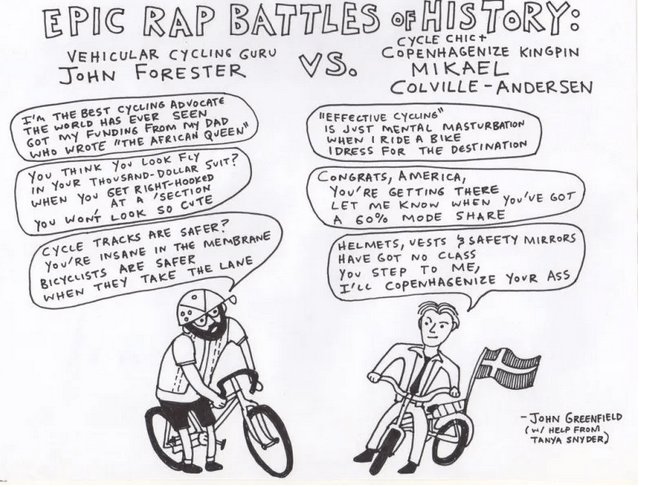 EPIC RAP BATTLES OF HISTORY:
VEHICULAR CYCLING GURU
JOHN FORESTER
VS.
CYCLE CHIC +
COPENHAGENIZE KINGPIN
MIKAEL
COLVILLE-ANDERSEN
I'M THE BEST CYCLING ADVOCATE
THE WORLD HAS EVER SEEN
GOT MY FUNDING FROM MY DAD
WHO WROTE "THE AFRICAN QUEEN"
YOU THINK YOU LOOK FLY
IN YOUR THOUSAND-DOLLAR SUIT?
WHEN YOU GET RIGHT-HOOKED
AT A 'SECTION
YOU WON'T LOOK SO CUTE
CYCLE TRACKS ARE SAFER?
YOU'RE INSANE IN THE MEMBRANE
BICYCLISTS ARE SAFER
WHEN THEY TAKE THE LANE
"EFFECTIVE CYCLING"
IS JUST MENTAL MASTURBATION
WHEN I RIDE A BIKE
I DRESS FOR THE DESTINATION
CONGRATS, AMERICA,
YOU'RE GETTING THERE
LET ME KNOW WHEN YOU'VE GOT
A 60% MODE SHARE
HELMETS, VESTS & SAFETY MIRRORS
HAVE GOT NO CLASS
YOU STEP TO ME,
I'LL COPENHAGENIZE YOUR ASS
-JOHN GREENFIELD
(W/ HELP FROM
TANYA SNYDER)